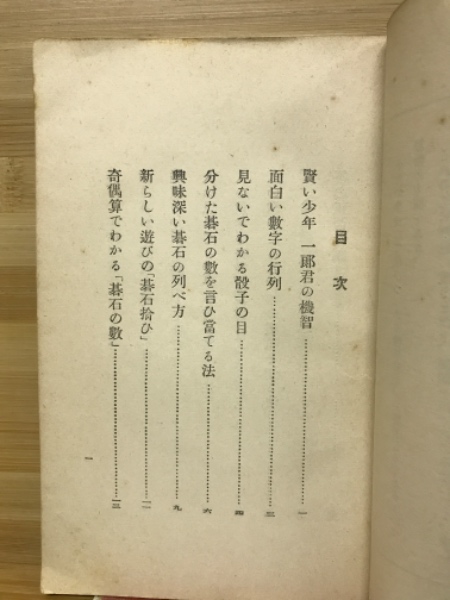 目次
賢い少年 一郎君の機智……一
面白い數字の行列……三
見ないでわかる骰子の目……四
分けた碁石の數を言ひ當てる法……六
興味深い碁石の列べ方……九
新らしい遊びの「碁石拾ひ」……一一
奇偶算でわかる「碁石の數」……一三
一